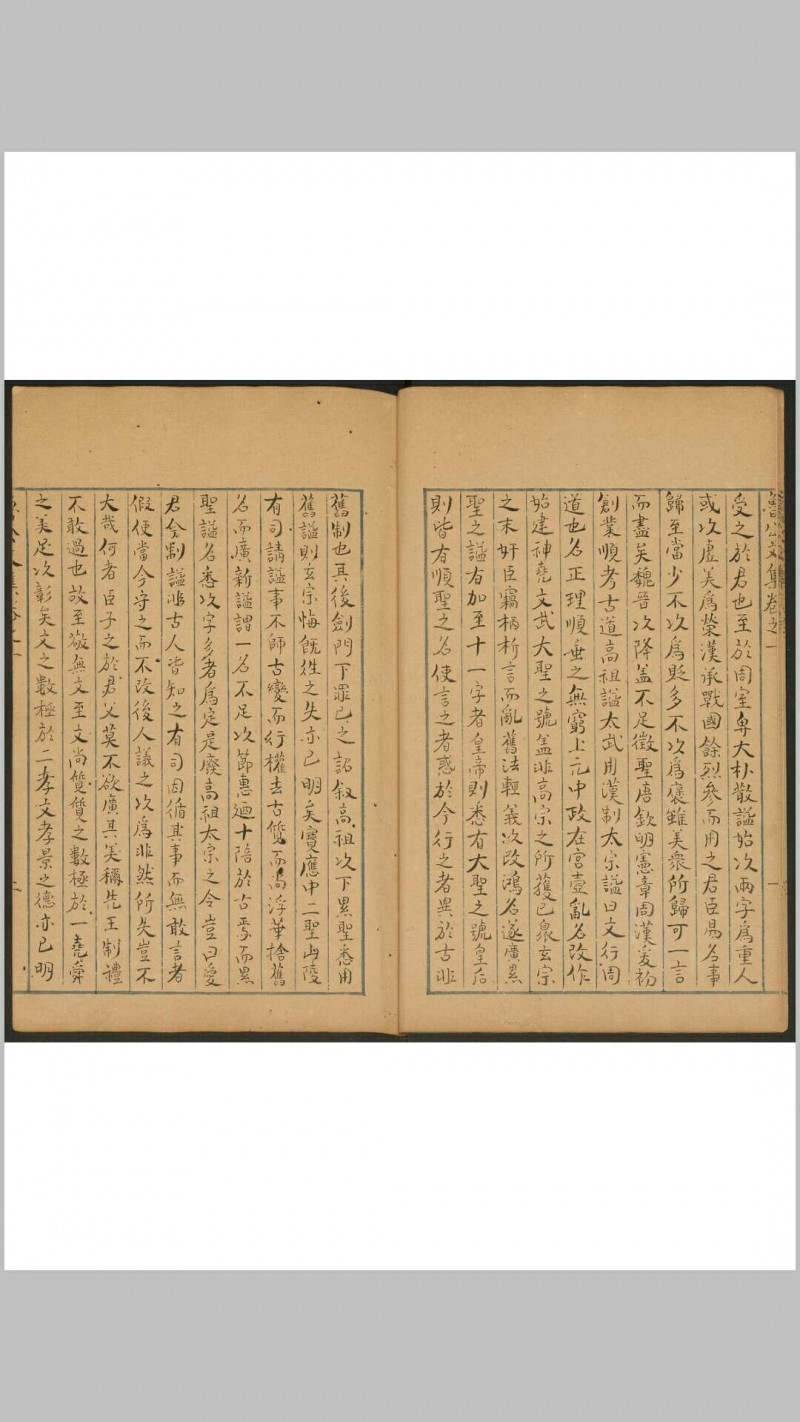 魯公文集卷之一
受之於君也至於周室卑大朴散謚始以兩字爲重人
或以虛美爲榮漢承戰國餘烈參而用之君臣易名事
歸至當少不以爲貶多不以爲褒雖美衆所歸可一言
而盡矣魏晉以降盖不足徵聖唐欽明憲章周漢爰初
創業順考古道高祖謚太武用漢制太宗謚曰文行周
道也名正理順垂之無窮上元中政在宮壼亂名改作
始建神堯文武大聖之號盖非高宗之所獲已泉玄宗
之末奸臣竊柄析言而亂舊法輕義以改鴻名遂廣累
聖之謚有加至十一字者皇帝則悉有大聖之號皇后
則皆有順聖之名使言之者惑於今行之者異於古非
舊制也其後劍門下罪已之詔叙高祖以下累聖悉用
舊謚則玄宗悔旣徃之失亦已明矣寳應中二聖山陵
有司請謚事不師古變而行權去古質而尚浮華捨舊
名而廣新謚謂一名不足以節惠廼十陪於古焉而累
聖謚名悉以字多者爲定是廢高祖太宗之令豈曰愛
君今制謚非古人皆知之有司因循其事而無敢言者
假使當今守之而不改後人議之以爲非然所失豈不
大哉何者臣子之於君父莫不欲廣其美稱先王制禮
不敢過也故至敬無文至文尚質質之數極於一堯舜
之美足以彰矣文之數極於二孝文孝景之德亦已明